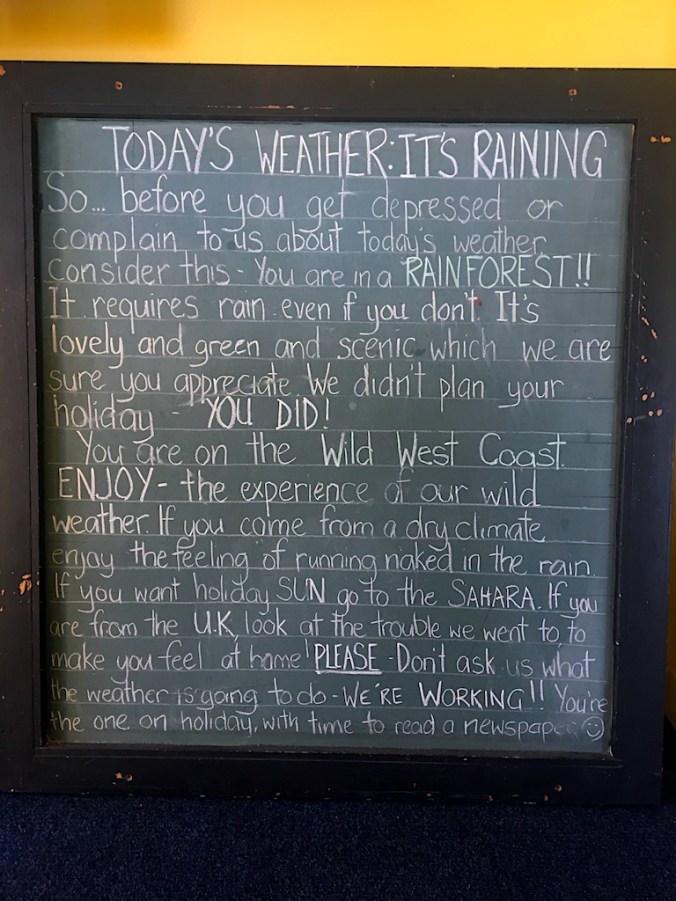 TODAY'S WEATHER: IT'S RAINING
So... before you get depressed or
complain to us about today's weather
Consider this - You are in a RAINFOREST!!
It requires rain even if you don't. It's
lovely and green and scenic which we are
sure you appreciate. We didn't plan your
holiday - YOU DID!
You are on the Wild West Coast.
ENJOY - the experience of our wild
weather. If you come from a dry climate
enjoy the feeling of running naked in the rain.
If you want holiday SUN go to the SAHARA. If you
are from the U.K, look at the trouble we went to to
make you feel at home! PLEASE - Don't ask us what
the weather is going to do - WE'RE WORKING!! You're
the one on holiday, with time to read a newspaper ☺